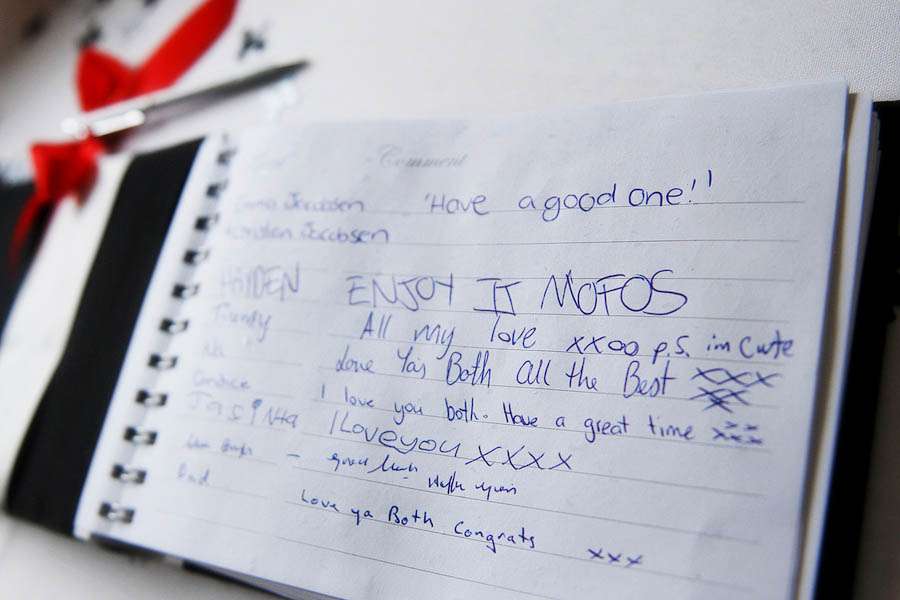 Comment
Jacobsen 'Have a good one!'
Jacobsen
HAYDEN ENJOY IT MOFOS
All my love xxoo p.s. im cute
Love Yas Both All the Best xxx
Candice I love you both. Have a great time xxxxx
I Love you XXXX
good luck
Dad Love ya Both Congrats xxx